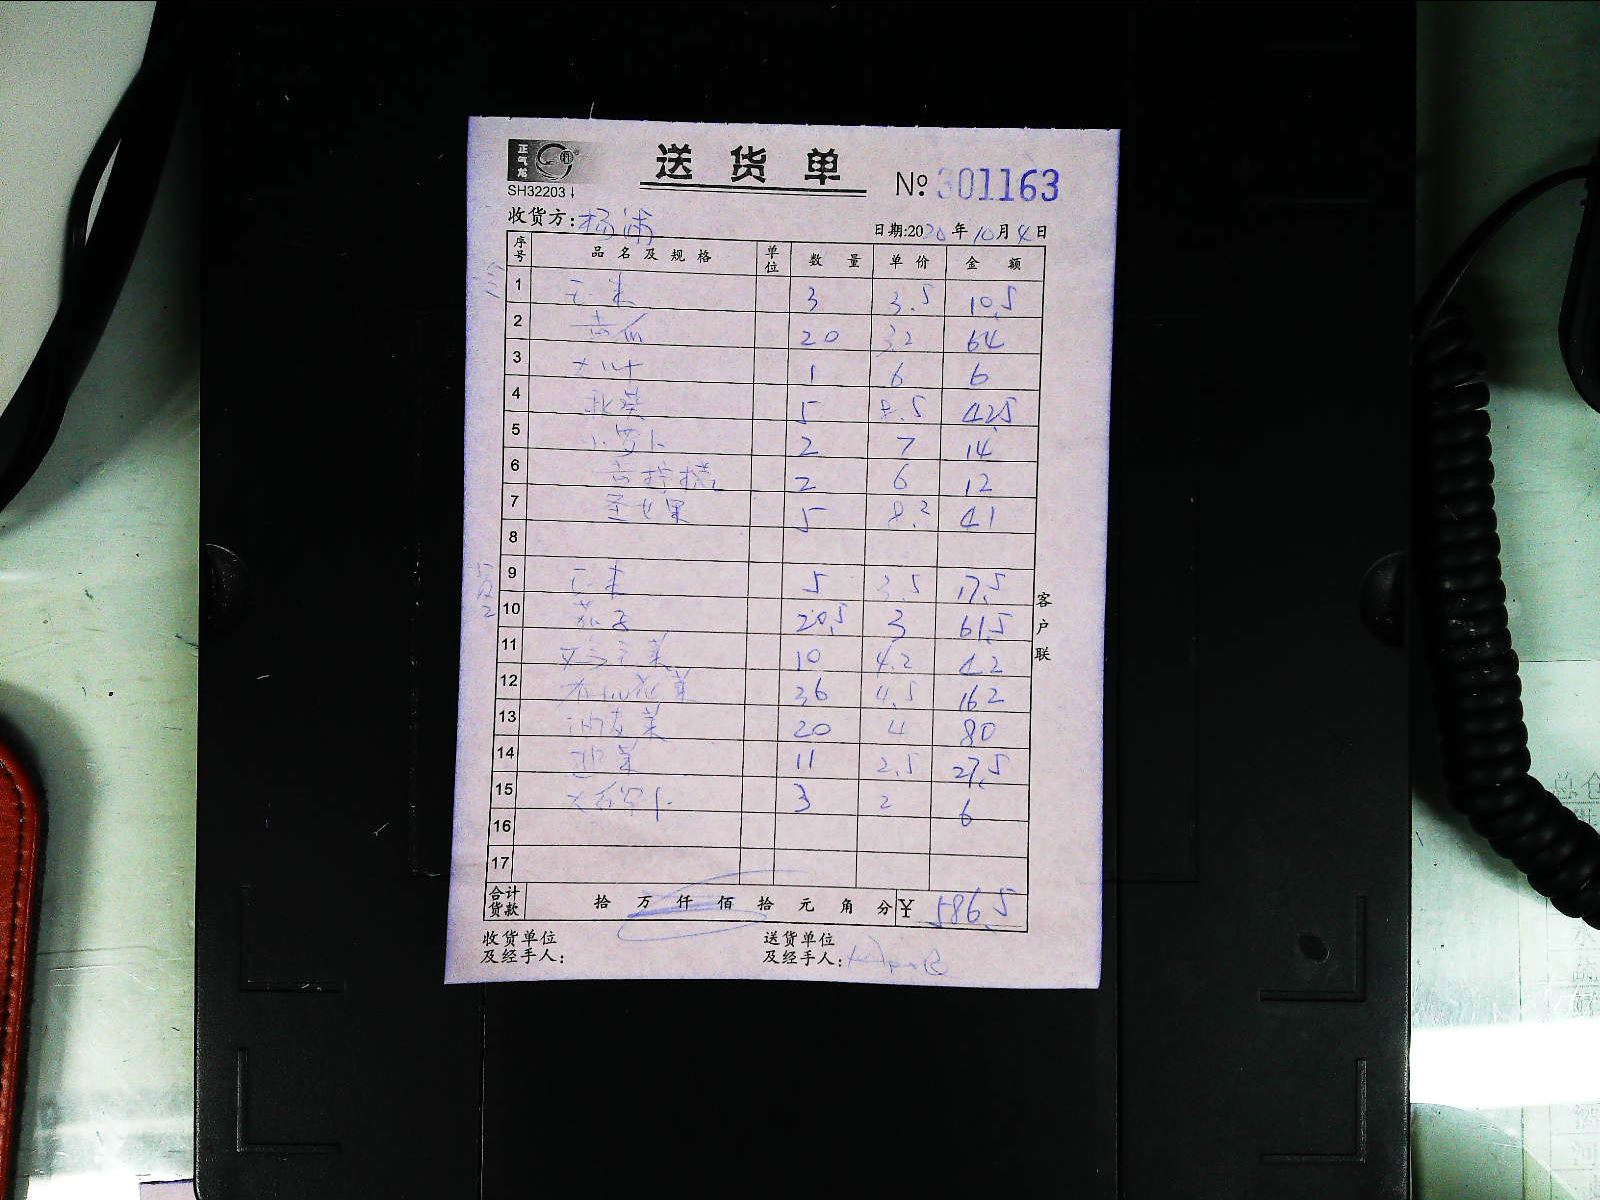 正气龙
SH32203↓
送货单
№ 301163
收货方: 杨浦
日期:2020年10月4日
序号 品名及规格 单位 数量 单价 金额
1 玉米 3 3.5 10.5
2 黄瓜 20 3.2 64
3 1 6 6
4 5 8.5 42.5
5 小萝卜 2 7 14
6 青柠檬 2 6 12
7 圣女果 5 8.2 41
8
9 玉米 5 3.5 17.5
10 茄子 20.5 3 61.5
11 10 4.2 42
12 有机花菜 36 4.5 162
13 油麦菜 20 4 80
14 11 2.5 27.5
15 大白萝卜 3 2 6
16
17
客户联
合计货款 拾 万 仟 佰 拾 元 角 分 ¥ 586.5
收货单位 送货单位
及经手人: 及经手人: